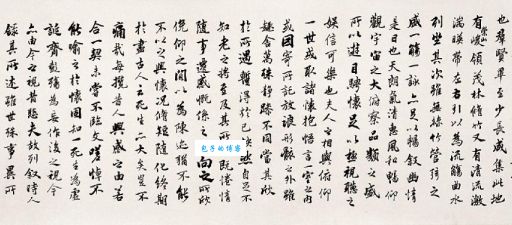 也群賢畢至少長咸集此地
有崇山峻領茂林脩竹又有清流激
湍暎帶左右引以為流觴曲水
列坐其次雖無絲竹管弦之
盛一觴一詠亦足以暢敘幽情
是日也天朗氣清惠風和暢仰
觀宇宙之大俯察品類之盛
所以遊目騁懷足以極視聽之
娛信可樂也夫人之相與俯仰
一世或取諸懷抱悟言一室之內
或因寄所託放浪形骸之外雖
趣舍萬殊靜躁不同當其欣
於所遇暫得於己怏然自足不
知老之將至及其所之既惓情
隨事遷感慨係之矣向之所欣
俛仰之間以為陳迹猶不能
不以之興懷況脩短隨化終期
於盡古人云死生亦大矣豈不
痛哉每攬昔人興感之由若
合一契未嘗不臨文嗟悼不
能喻之於懷固知一死生為虛
誕齊彭殤為妄作後之視今
亦由今之視昔悲夫故列敘時人
錄其所述雖世殊事異所
包子的博客